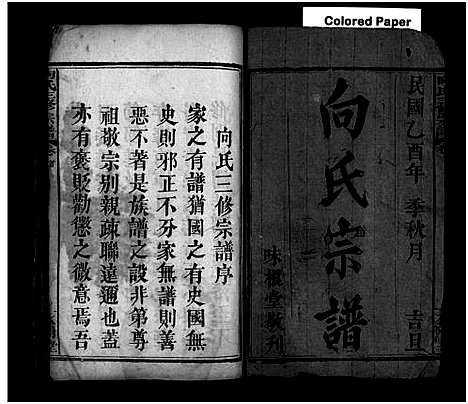 Colored Paper
民國乙酉年 季秋月 吉旦
向氏宗譜
味根堂敬刊
向氏三修宗譜序
家之有譜猶國之有史國無
史則邪正不分家無譜則善
惡不著是族譜之設非第尊
祖敬宗別親疎聯遠邇也蓋
亦有褒貶勸懲之微意焉吾